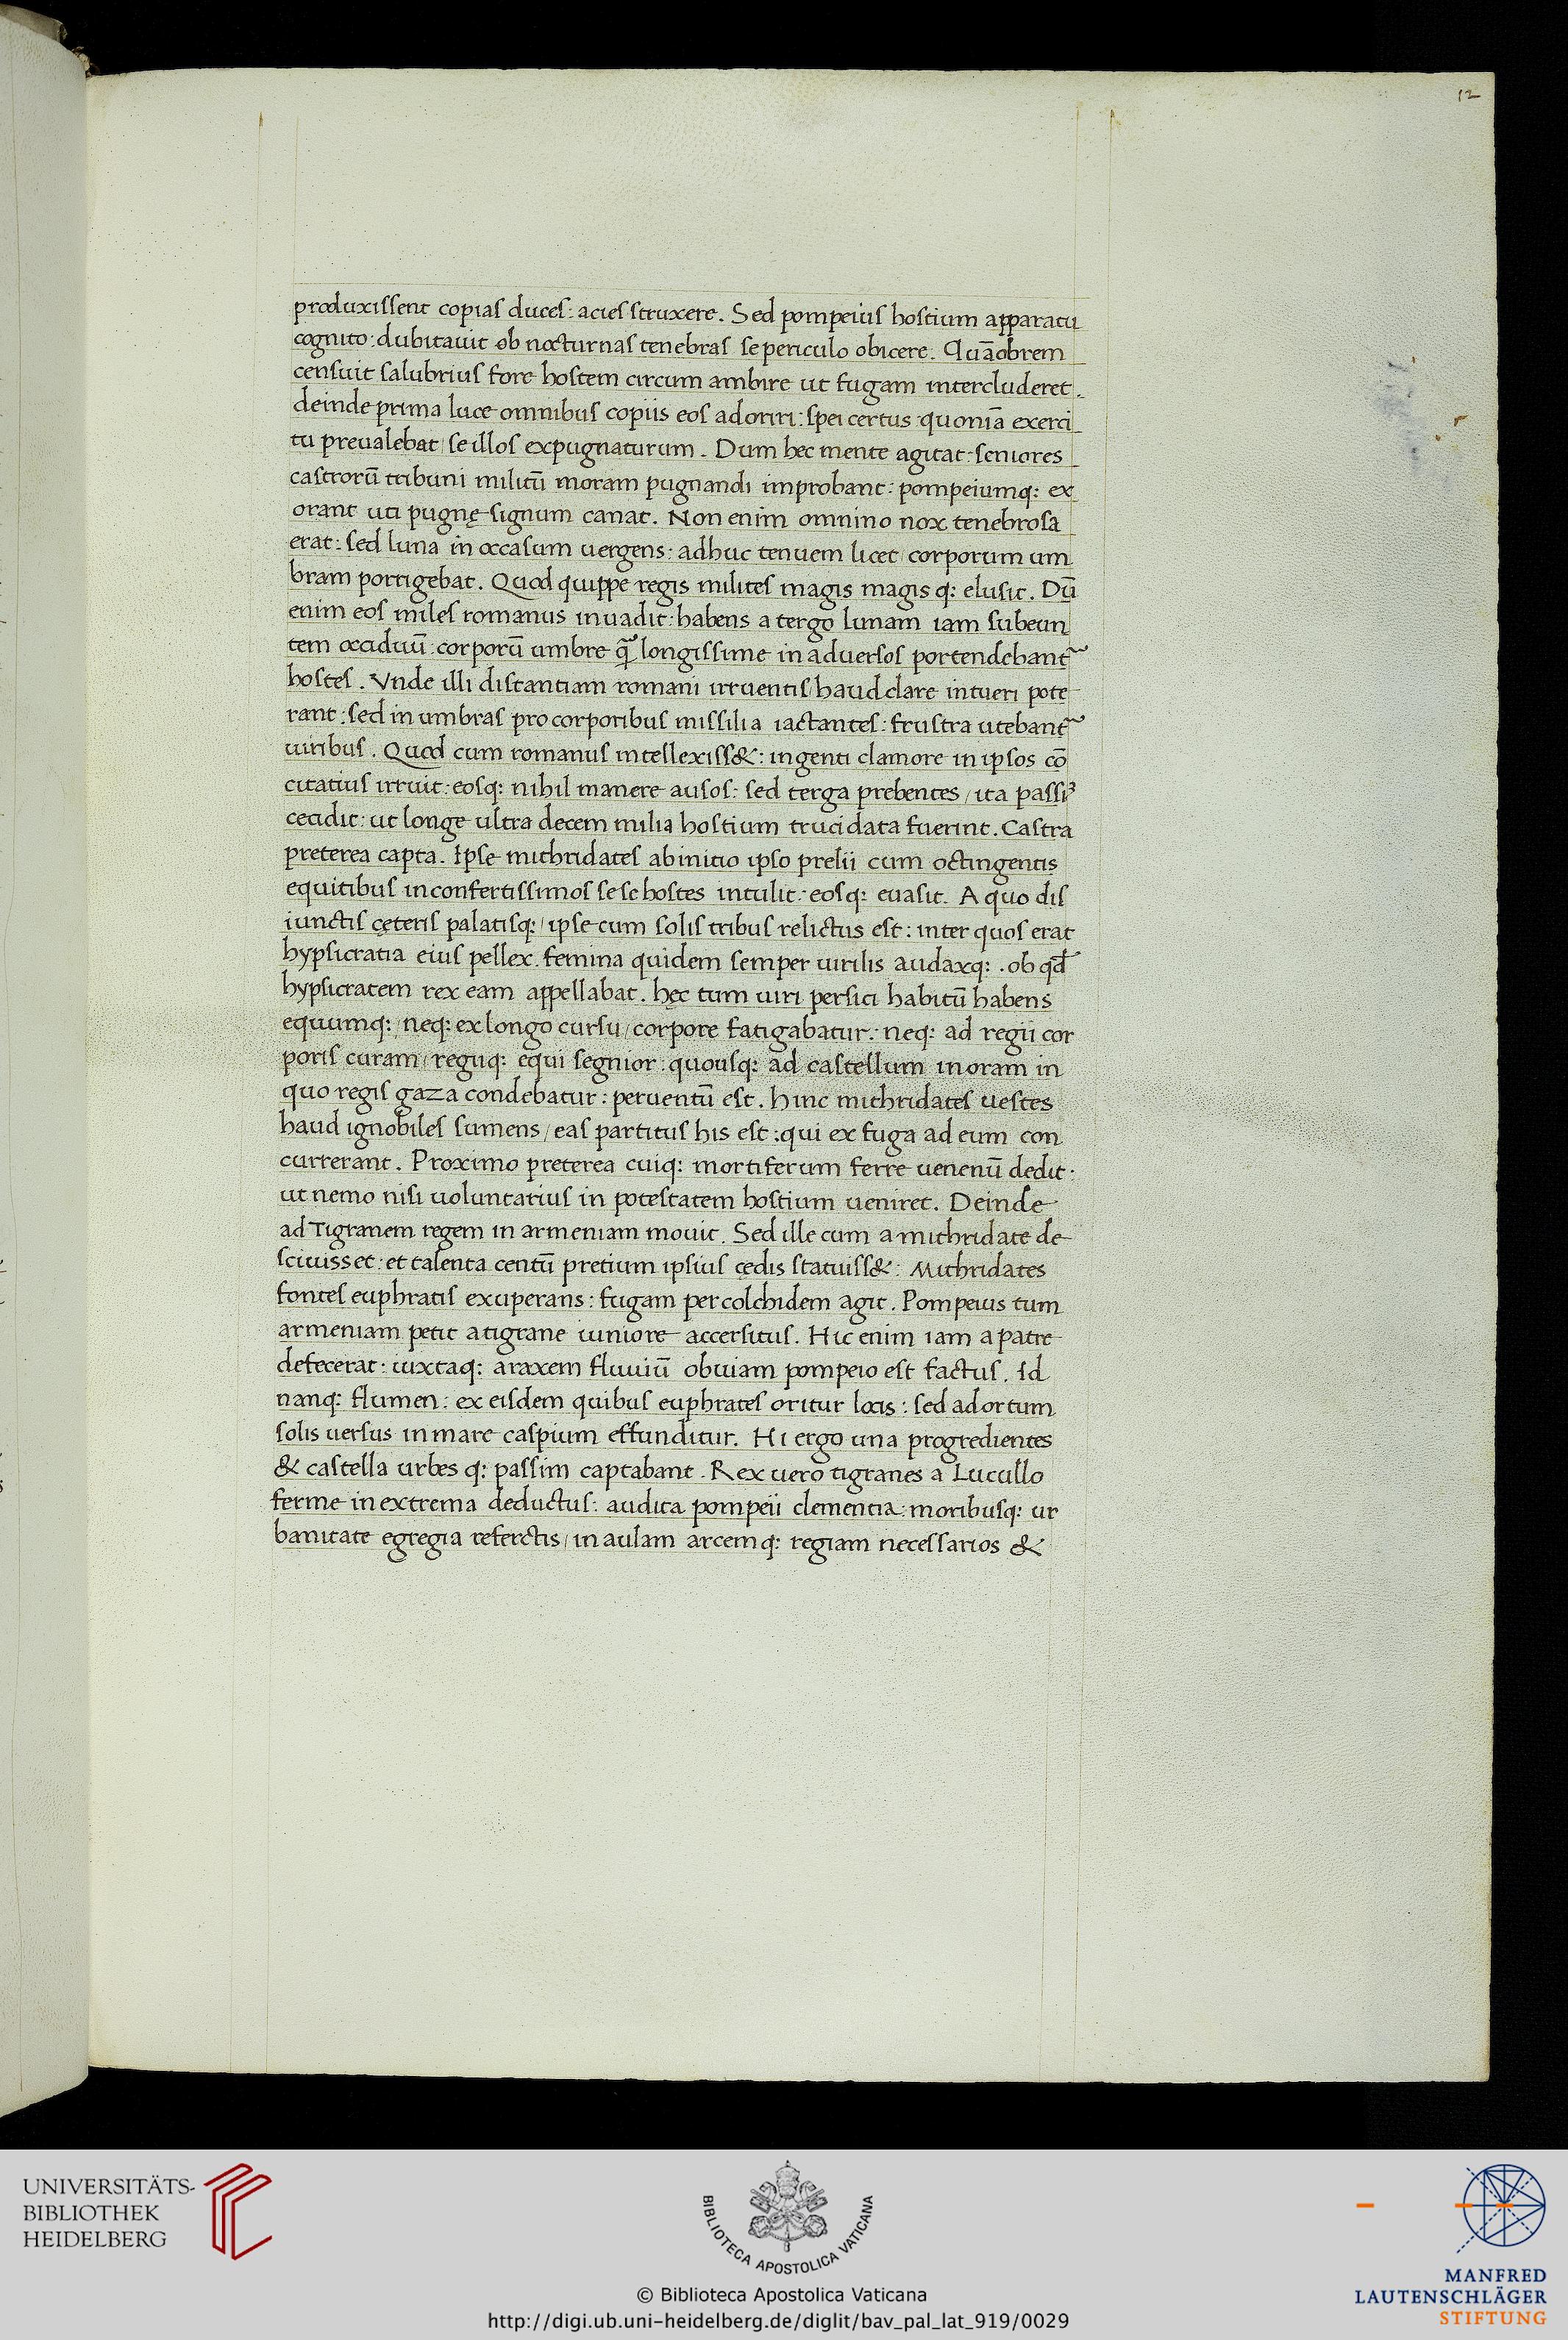 12
produxissent copias duces: acies struxere. Sed pompeius hostium apparatu
cognito: dubitauit ob nocturnas tenebras se periculo obicere. Quãobrem
censuit salubrius fore hostem circum ambire ut fugam intercluderet.
deinde prima luce omnibus copiis eos adoriri: spei certus quoniã exerci
tu preualebat / se illos expugnaturum. Dum hec mente agitat: seniores
castrorũ tribuni militũ moram pugnandi improbant: pompeiumq: ex
orant uti pugnę signum canat. Non enim omnino nox tenebrosa
erat: sed luna in occasum uergens: adhuc tenuem licet / corporum um
bram porrigebat. Quod quippe regis milites magis magis q: elusit. Dũ
enim eos miles romanus inuadit: habens a tergo lunam iam subeun
tem occiduũ: corporũ umbre q̃ longissime in aduersos portendebant᷉
hostes. Vnde illi distantiam romani irruentis / haud clare intueri pote
rant: sed in umbras pro corporibus missilia iactantes: frustra utebant᷉
uiribus. Quod cum romanus intellexiss&: ingenti clamore in ipsos cõ
citatius irruit: eosq: nihil manere ausos: sed terga prebentes / ita passĩ
cecidit: ut longe ultra decem milia hostium trucidata fuerint. Castra
preterea capta. Ipse mithridates ab initio ipso prelii cum octingentis
equitibus in confertissimos se se hostes intulit: eosq: euasit. A quo dis
iunctis cęteris palatisq: / ipse cum solis tribus relictus est: inter quos erat
hypsicratia eius pellex. femina quidem semper uirilis audaxq: . ob qđ
hypsicratem rex eam appellabat. hęc tum uiri persici habitũ habens
equumq: / neq: ex longo cursu / corpore fatigabatur: neq: ad regii cor
poris curam / regiiq: equi segnior: quousq: ad castellum inoram in
quo regis gaza condebatur: peruentũ est. Hinc mithridates uestes
haud ignobiles sumens / eas partitus his est: qui ex fuga ad eum con
currerant. Proximo preterea cuiq: mortiferum ferre uenenũ dedit:
ut nemo nisi uoluntarius in potestatem hostium ueniret. Deinde
ad Tigranem regem in armeniam mouit. Sed ille cum a mithridate de
sciuisset: et talenta centũ pretium ipsius cędis statuiss&: Mithridates
fontes euphratis exuperans: fugam per colchidem agit. Pompeius tum
armeniam petit a tigrane iuniore accersitus. Hic enim iam a patre
defecerat: iuxtaq: araxem fluuiũ obuiam pompeio est factus. Id
nanq: flumen: ex eisdem quibus euphrates oritur locis: sed ad ortum
solis uersus in mare caspium effunditur. Hi ergo una progredientes
& castella urbes q: passim captabant. Rex uero tigranes a Lucullo
ferme in extrema deductus: audita pompeii clementia: moribusq: ur
banitate egregia refertis / in aulam arcemq: regiam necessarios &
UNIVERSITÄTS-
BIBLIOTHEK
HEIDELBERG
BIBLIOTECA APOSTOLICA VATICANA
© Biblioteca Apostolica Vaticana
http://digi.ub.uni-heidelberg.de/diglit/bav_pal_lat_919/0029
MANFRED
LAUTENSCHLÄGER
STIFTUNG